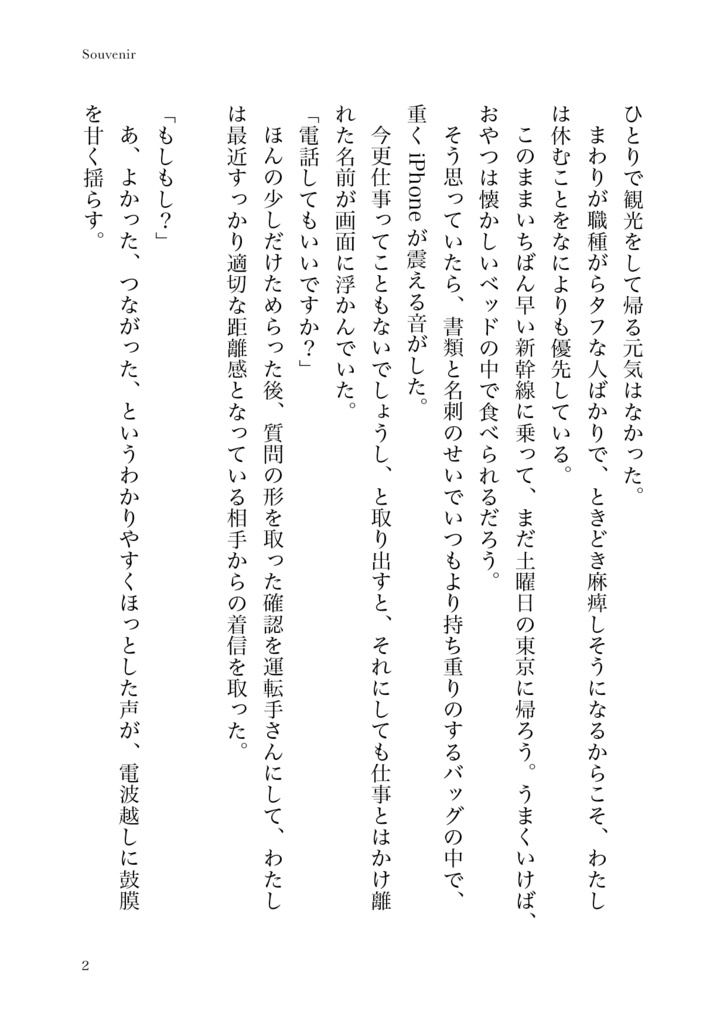 Souvenir
ひとりで観光をして帰る元気はなかった。
まわりが職種がらタフな人ばかりで、ときどき麻痺しそうになるからこそ、わたし
は休むことをなによりも優先している。
このままいちばん早い新幹線に乗って、まだ土曜日の東京に帰ろう。うまくいけば、
おやつは懐かしいベッドの中で食べられるだろう。
そう思っていたら、書類と名刺のせいでいつもより持ち重りのするバッグの中で、
重く iPhone が震える音がした。
今更仕事ってこともないでしょうし、と取り出すと、それにしても仕事とはかけ離
れた名前が画面に浮かんでいた。
「電話してもいいですか？」
ほんの少しだけためらった後、質問の形を取った確認を運転手さんにして、わたし
は最近すっかり適切な距離感となっている相手からの着信を取った。
「もしもし？」
あ、よかった、つながった、というわかりやすくほっとした声が、電波越しに鼓膜
を甘く揺らす。
2